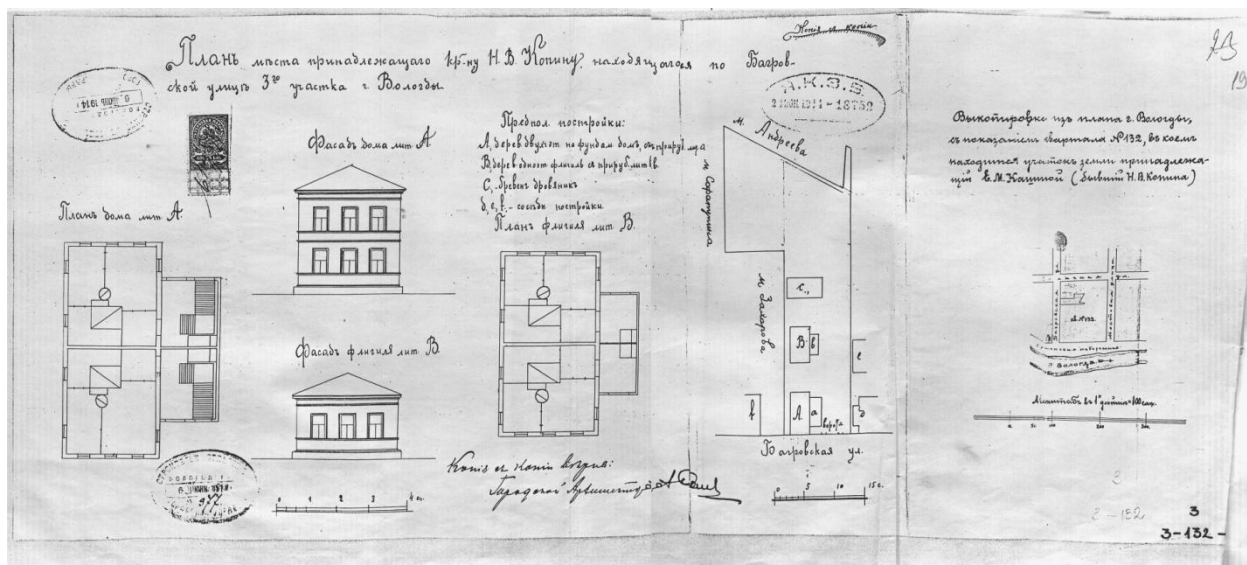 Копія съ копіи
Планъ мѣста принадлежащаго кр-ну Н. В. Копину, находящагося по Багров-
ской улицѣ 3го участка г. Вологды.
19
Н.К.З.Б.
6 ІЮНЬ 1914
Фасадъ дома лит. А
Планъ дома лит. А
Фасадъ флигиля лит. В.
0 1 2 3 4 с.
Предпол. постройки:
А, дерев. двухэт. на фундам. домъ, съ прируб. лит. а
В, дерев. одноэт. флигиль съ прируб. лит. в.
С,- бревен. дровяникъ
d, e, f,- сосѣдн. постройки
Планъ флигиля лит. В.
Копія съ копіи вѣрна:
Городской Архитекторъ
977
м. Андреева
м. Сарапунина
м. Захарова
С.
В. в
е
f
А
а
ворота
d
Багровская ул.
0 5 10 15 с.
Выкопировка изъ плана г. Вологды,
съ показаніемъ квартала №132, въ коемъ
находится участокъ земли принадлежа-
щій Е. М. Кашиной (бывшій Н. В. Копина)
№132.
р. Вологда
Масштабъ въ 1" дюймѣ = 100 саж.
0 50 100 200 300
3
3-132
3
3-132-